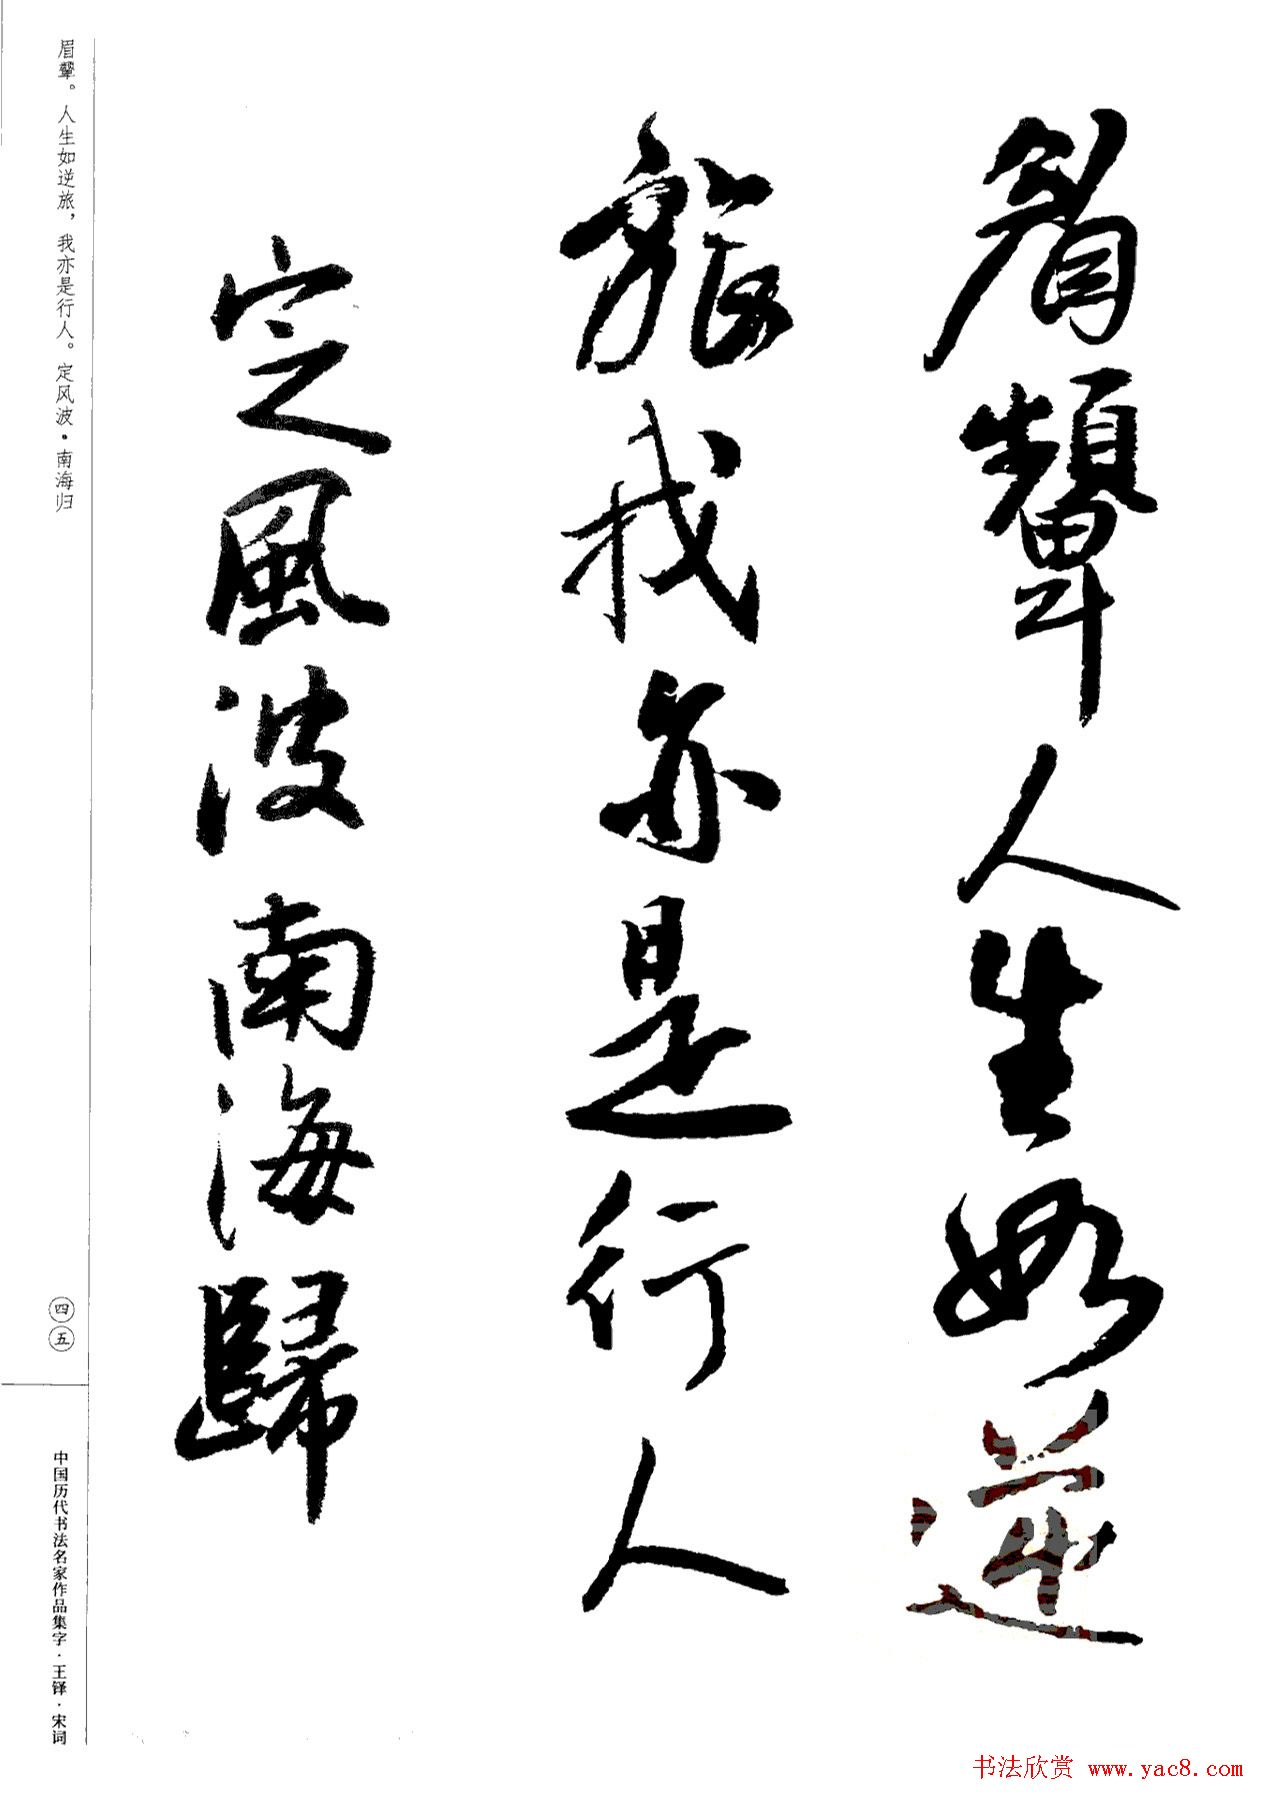 眉顰人生如逆
旅我亦是行人
定風波南海歸
眉颦。人生如逆旅，我亦是行人。定风波·南海归
四五
中国历代书法名家作品集字·王铎·宋词
书法欣赏 www.yac8.com